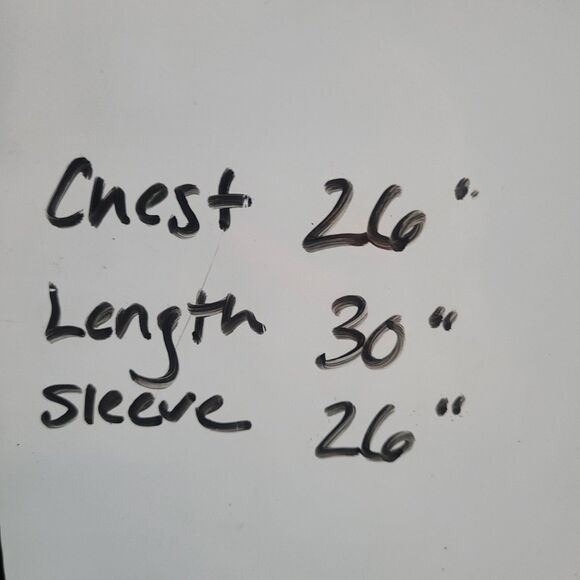 Chest 26"
Length 30"
Sleeve 26"